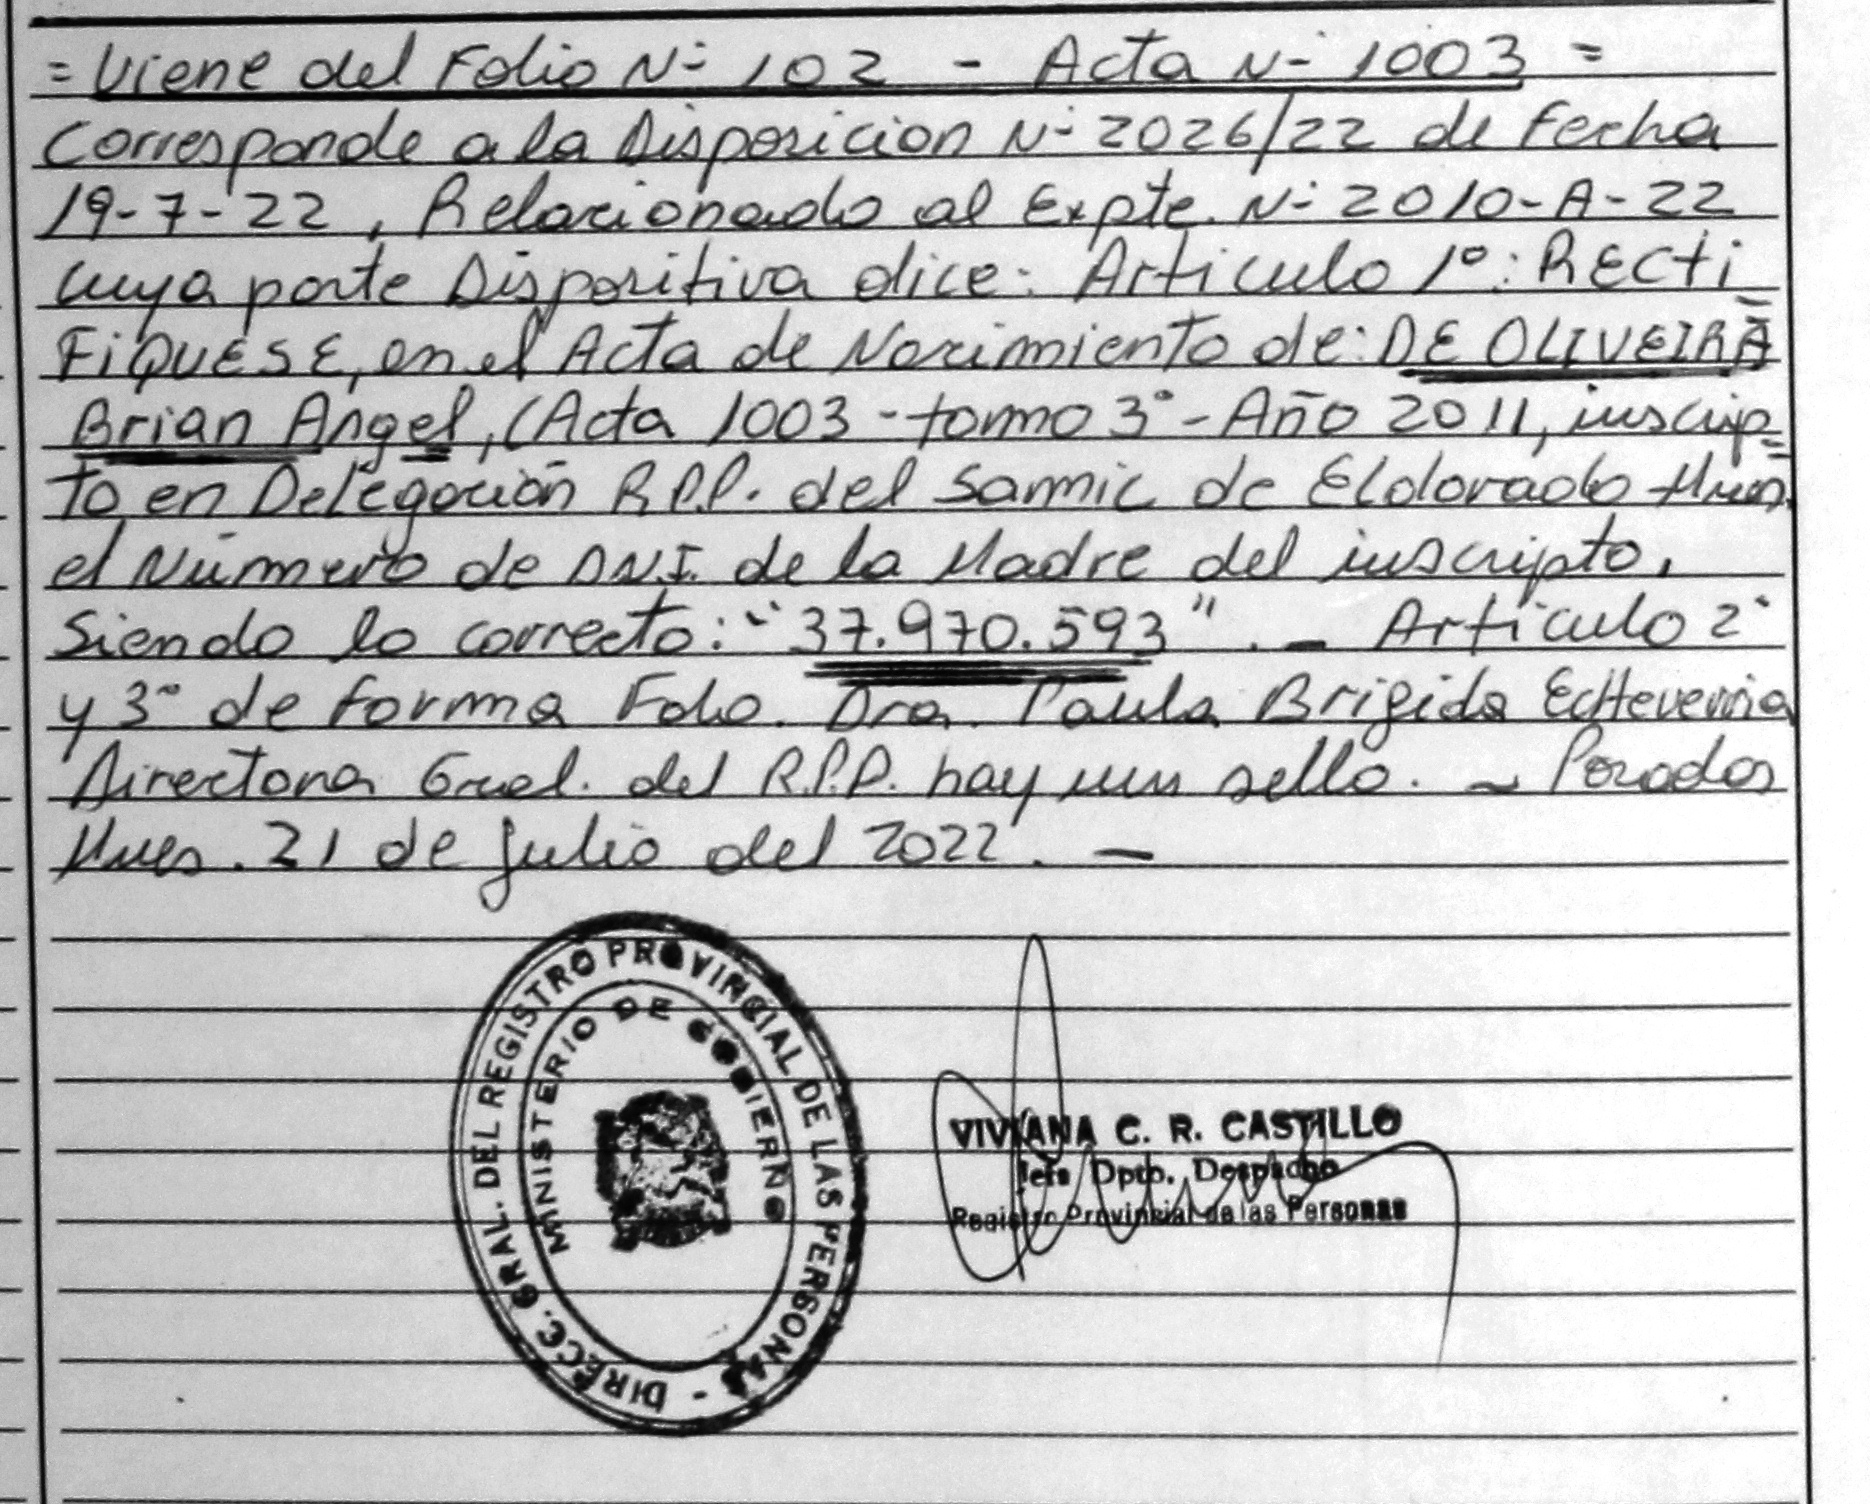 = Viene del Folio N° 102 - Acta N° 1003 =
Corresponde a la Disposicion N° 2026/22 de Fecha
19-7-22, Relacionado al Expte. N° 2010-A-22
cuya parte Dispositiva dice: Articulo 1°: RECTI
FIQUESE, en el Acta de Nacimiento de: DE OLIVEIRA
Brian Angel, (Acta 1003 - tomo 3° - Año 2011, inscrip=
to en Delegación R.P.P. del Samic de Eldorado Mnes.
el Número de D.N.I. de la Madre del inscripto,
Siendo lo correcto: "37.970.593". - Articulo 2°
y 3° de forma Fdo. Dra. Paula Brigida Echeverria
Directora Gral. del R.P.P. hay un sello. - Posadas
Mnes. 21 de julio del 2022. -
DIRECC. GRAL. DEL REGISTRO PROVINCIAL DE LAS PERSONAS -
MINISTERIO DE GOBIERNO
VIVIANA C. R. CASTILLO
Jefa Dpto. Despacho
Registro Provincial de las Personas